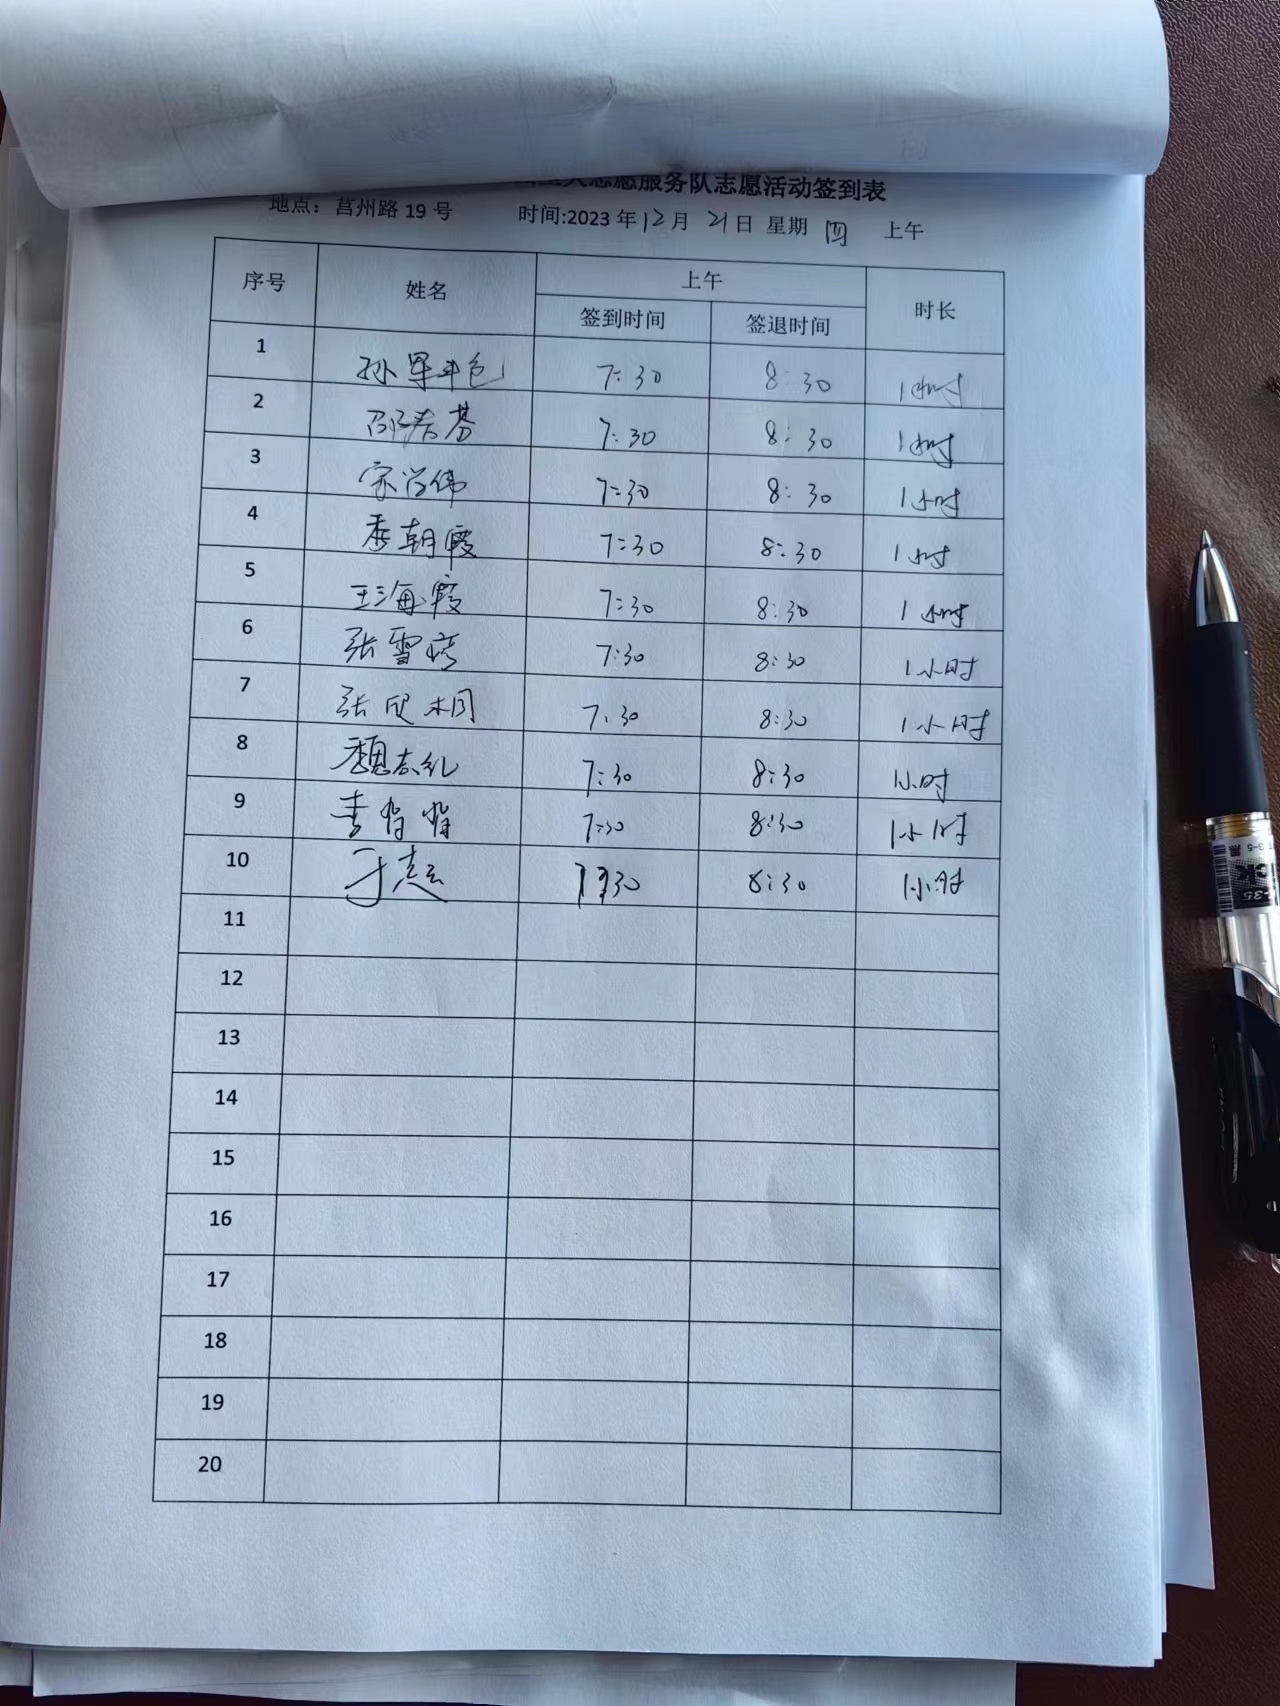 志愿服务队志愿活动签到表
地点：莒州路 19 号 时间:2023 年 12 月 21 日 星期 四 上午
序号 姓名 上午 时长
签到时间 签退时间
1 孙 7:30 8:30 1小时
2 邵春芬 7:30 8:30 1小时
3 宋 伟 7:30 8:30 1小时
4 季朝霞 7:30 8:30 1小时
5 王海霞 7:30 8:30 1小时
6 张雪 7:30 8:30 1小时
7 张欣桐 7:30 8:30 1小时
8 魏志礼 7:30 8:30 1小时
9 李 7:30 8:30 1小时
10 于志 7:30 8:30 1小时
11
12
13
14
15
16
17
18
19
20